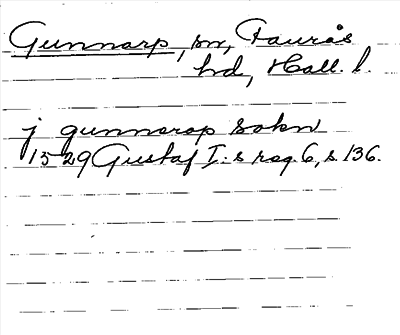 Gunnarp, sn, Faurås
hd, Hall. l.
j gunnarap sokn
1529 Gustaf I:s reg. 6, s. 136.